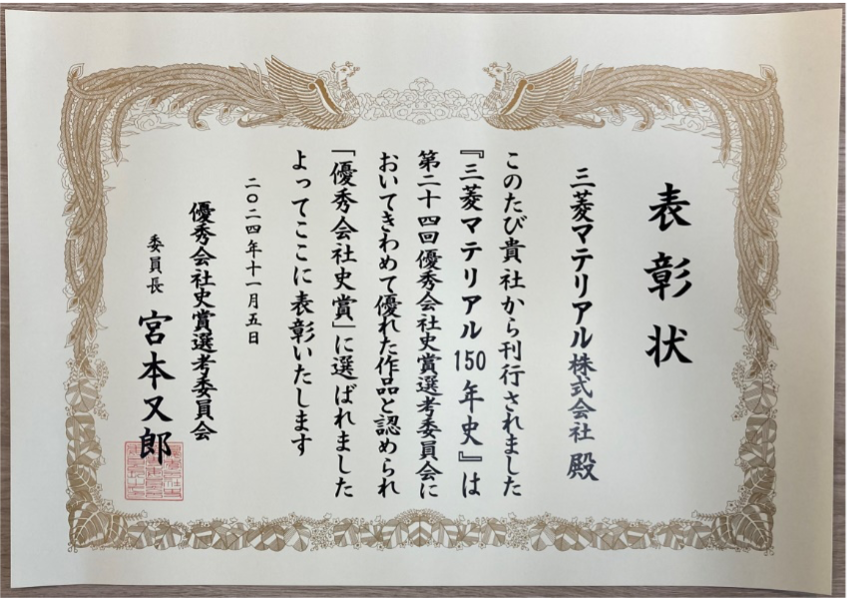 表彰状
三菱マテリアル株式会社 殿
このたび貴社から刊行されました
『三菱マテリアル150年史』は
第二十四回優秀会社史賞選考委員会に
おいてきわめて優れた作品と認められ
「優秀会社史賞」に選ばれました
よってここに表彰いたします
二〇二四年十一月五日
優秀会社史賞選考委員会
委員長 宮本又郎